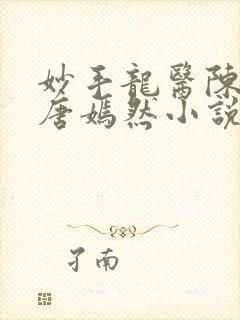 妙手龍醫陳
唐嫣然小說
孑南